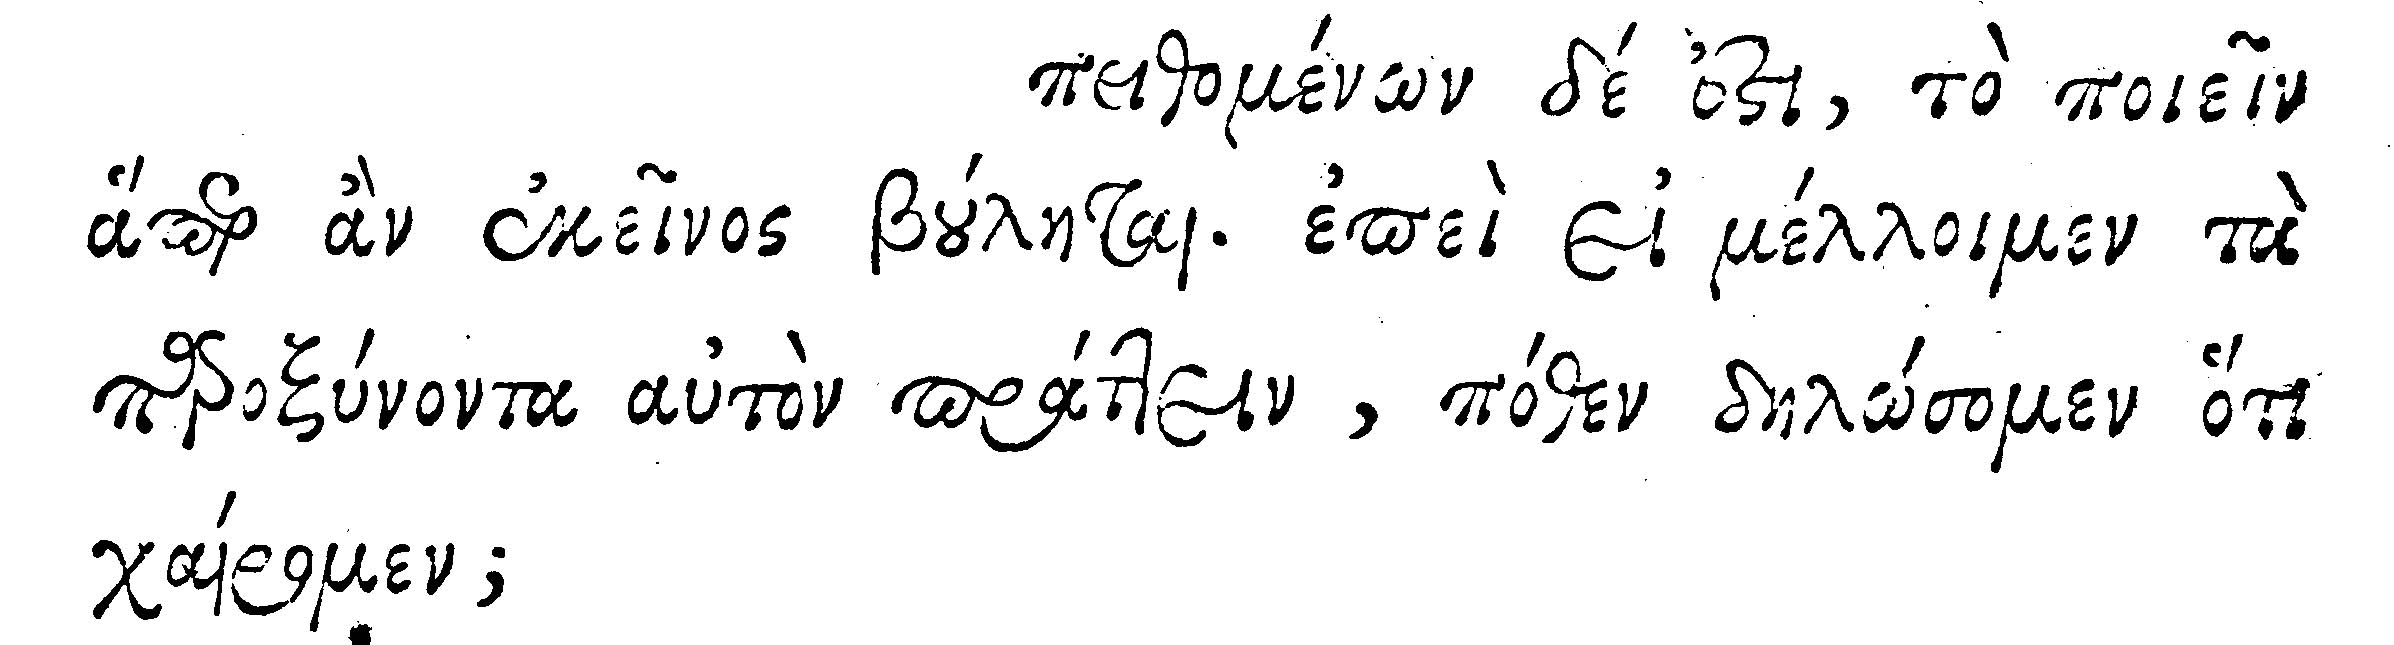 πειθομένων δέ ἐστι, τὸ ποιεῖν
ἅπερ ἂν ἐκεῖνος βούληται. ἐπεὶ εἰ μέλλοιμεν τὰ
παροξύνοντα αὐτὸν πράττειν, πόθεν δηλώσομεν ὅτι
χαίρομεν;